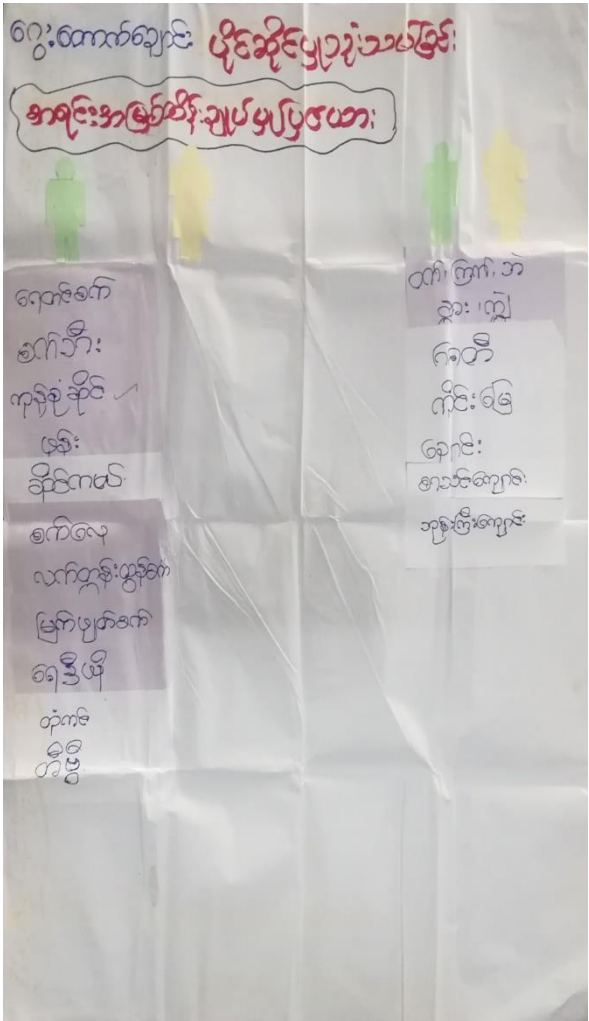 ဂွေးတောက်ချောင်း ပိုင်ဆိုင်မှုသုံးသပ်ခြင်း
အရင်းအမြစ်ထိန်းချုပ်မှုပြဇယား
ရေတင်စက်
စက်ဘီး
ကုန်စုံဆိုင်
ဖုန်း
ဆိုင်ကယ်
စက်လှေ
လက်တွန်းထွန်စက်
မြက်ဖြတ်စက်
ရေဒီယို
တုံကင်
တီဗွီ
ဝက်၊ ကြက်၊ ဘဲ
နွား၊ ကျွဲ
ဂဒတီ
ကိုင်းမြေ
ချောင်း
စာသင်ကျောင်း
ဘုန်းကြီးကျောင်း